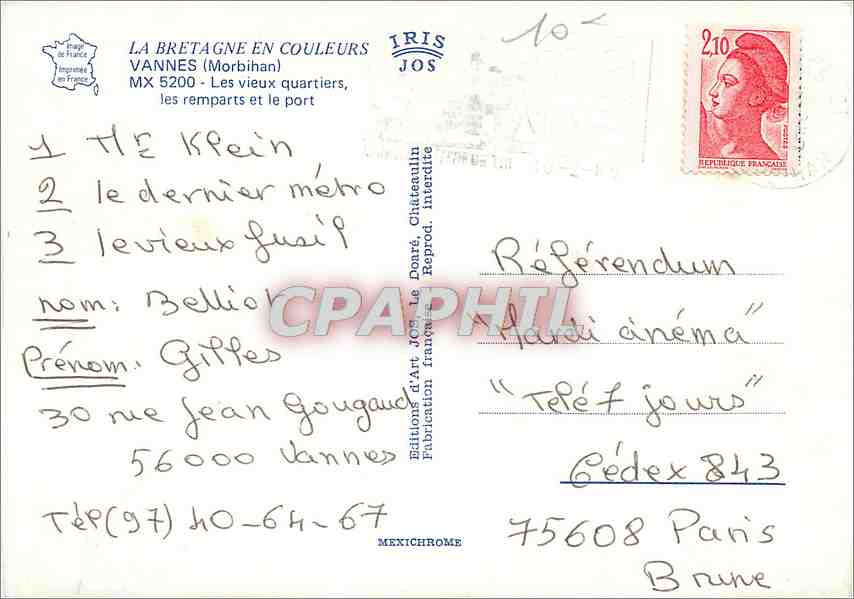 Image
de France
Imprimée
en France
LA BRETAGNE EN COULEURS
VANNES (Morbihan)
MX 5200 - Les vieux quartiers,
les remparts et le port
IRIS
JOS
10
2,10
REPUBLIQUE FRANÇAISE
POSTES
1 Mr Klein
2 le dernier métro
3 le vieux fusil
nom: Belliot
Prénom: Gilles
30 rue Jean Gougaud
56000 Vannes
Tép(97) 40-64-67
Editions d'Art JOS, Le Doaré, Châteaulin
Fabrication française - Reprod. interdite
MEXICHROME
CPAPHIL
Référendum
"Mardi cinéma"
"Télé 7 jours"
Cédex 843
75608 Paris
Brune